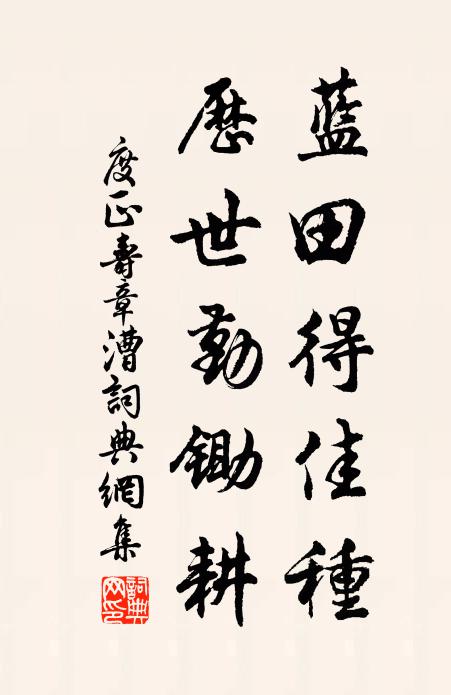 藍田得佳種
歷世勤鋤耕
度正壽章漕詞典網集
詞典網印